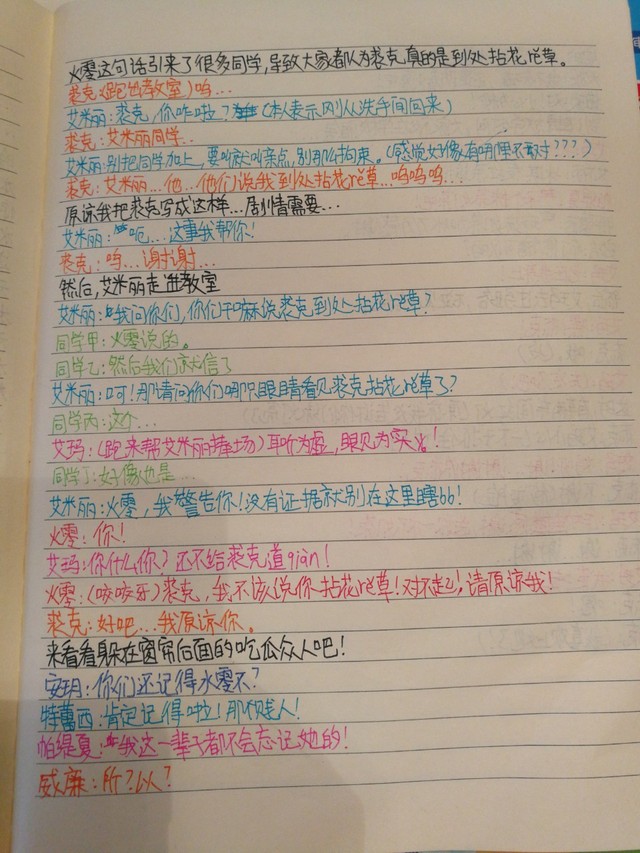 火零这句话引来了很多同学,导致大家都认为裘克真的是到处拈花惹草。
裘克(跑出教室)呜…
艾米丽:裘克,你咋啦?(本人表示刚从洗手间回来)
裘克:艾米丽同学..
艾米丽:别把同学加上,要叫就叫亲点,别那么拘束。(感觉好像有哪里不对???)
裘克:艾米丽…他…他们说我到处拈花惹草…呜呜呜…
原谅我把裘克写成这样…剧情需要…
艾米丽:呃…这事我帮你!
裘克:呜…谢谢…
然后,艾米丽走进教室
艾米丽:我问你们,你们干嘛说裘克到处拈花惹草?
同学甲:火零说的。
同学乙:然后我们就信了
艾米丽:呵!那请问你们哪只眼睛看见裘克拈花惹草了?
同学丙:这个…
艾玛:(跑来帮艾米丽捧场)耳听为虚,眼见为实!
同学丁:好像也是…
艾米丽:火零,我警告你!没有证据就别在这里瞎bb!
火零:你!
艾玛:你什么你?还不给裘克道qiàn!
火零:(咬咬牙)裘克,我不该说你拈花惹草!对不起!,请原谅我!
裘克:好吧…我原谅你。
来看看躲在窗帘后面的吃瓜众人吧!
安玥:你们还记得水零不?
特蕾西:肯定记得啦!那个贱人!
帕缇夏:我这一辈子都不会忘记她的!
威廉:所?以?